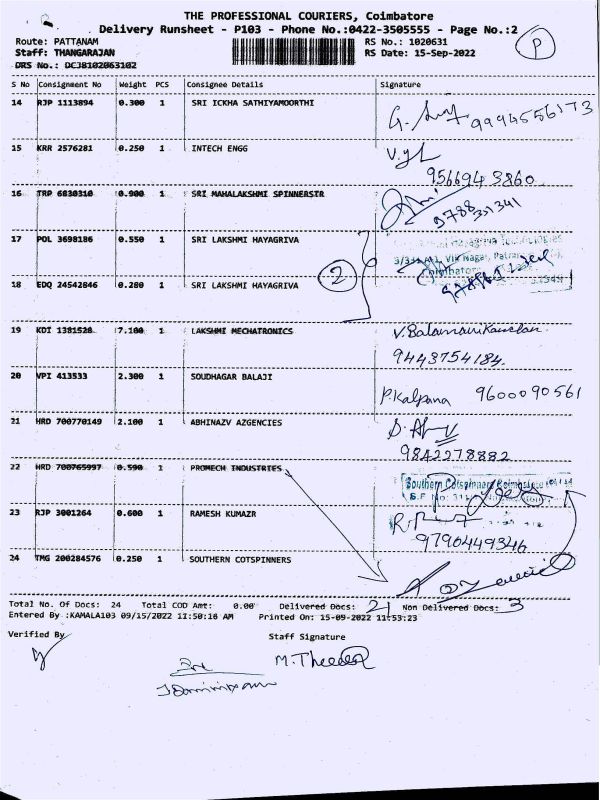 THE PROFESSIONAL COURIERS, Coimbatore
Delivery Runsheet - P103 - Phone No.:0422-3505555 - Page No.:2
Route: PATTANAM RS No.: 1020631
Staff: THANGARAJAN RS Date: 15-Sep-2022
DRS No.: DCJ8102063102
P
S No Consignment No Weight PCS Consignee Details Signature
14 RJP 1113894 0.300 1 SRI ICKHA SATHIYAMOORTHI
9994556173
15 KRR 2576281 0.250 1 INTECH ENGG
956694 3860
16 TRP 6830310 0.900 1 SRI MAHALAKSHMI SPINNERSTR
9788351341
17 POL 3698186 0.550 1 SRI LAKSHMI HAYAGRIVA
2
18 EDQ 24542846 0.280 1 SRI LAKSHMI HAYAGRIVA
19 KDI 1381528 7.100 1 LAKSHMI MECHATRONICS
9443754184.
20 VPI 413533 2.300 1 SOUDHAGAR BALAJI
P.Kalpana 9600090561
21 HRD 700770149 2.100 1 ABHINAZV AZGENCIES
9842278882
22 HRD 700765997 0.590 1 PROMECH INDUSTRIES
Southern Cotspinners Coimbatore
23 RJP 3001264 0.600 1 RAMESH KUMAZR
9790449346
24 TMG 200284576 0.250 1 SOUTHERN COTSPINNERS
Total No. Of Docs: 24 Total COD Amt: 0.00 Delivered Docs: 21 Non Delivered Docs: 3
Entered By :KAMALA103 09/15/2022 11:50:16 AM Printed On: 15-09-2022 11:53:23
Verified By Staff Signature